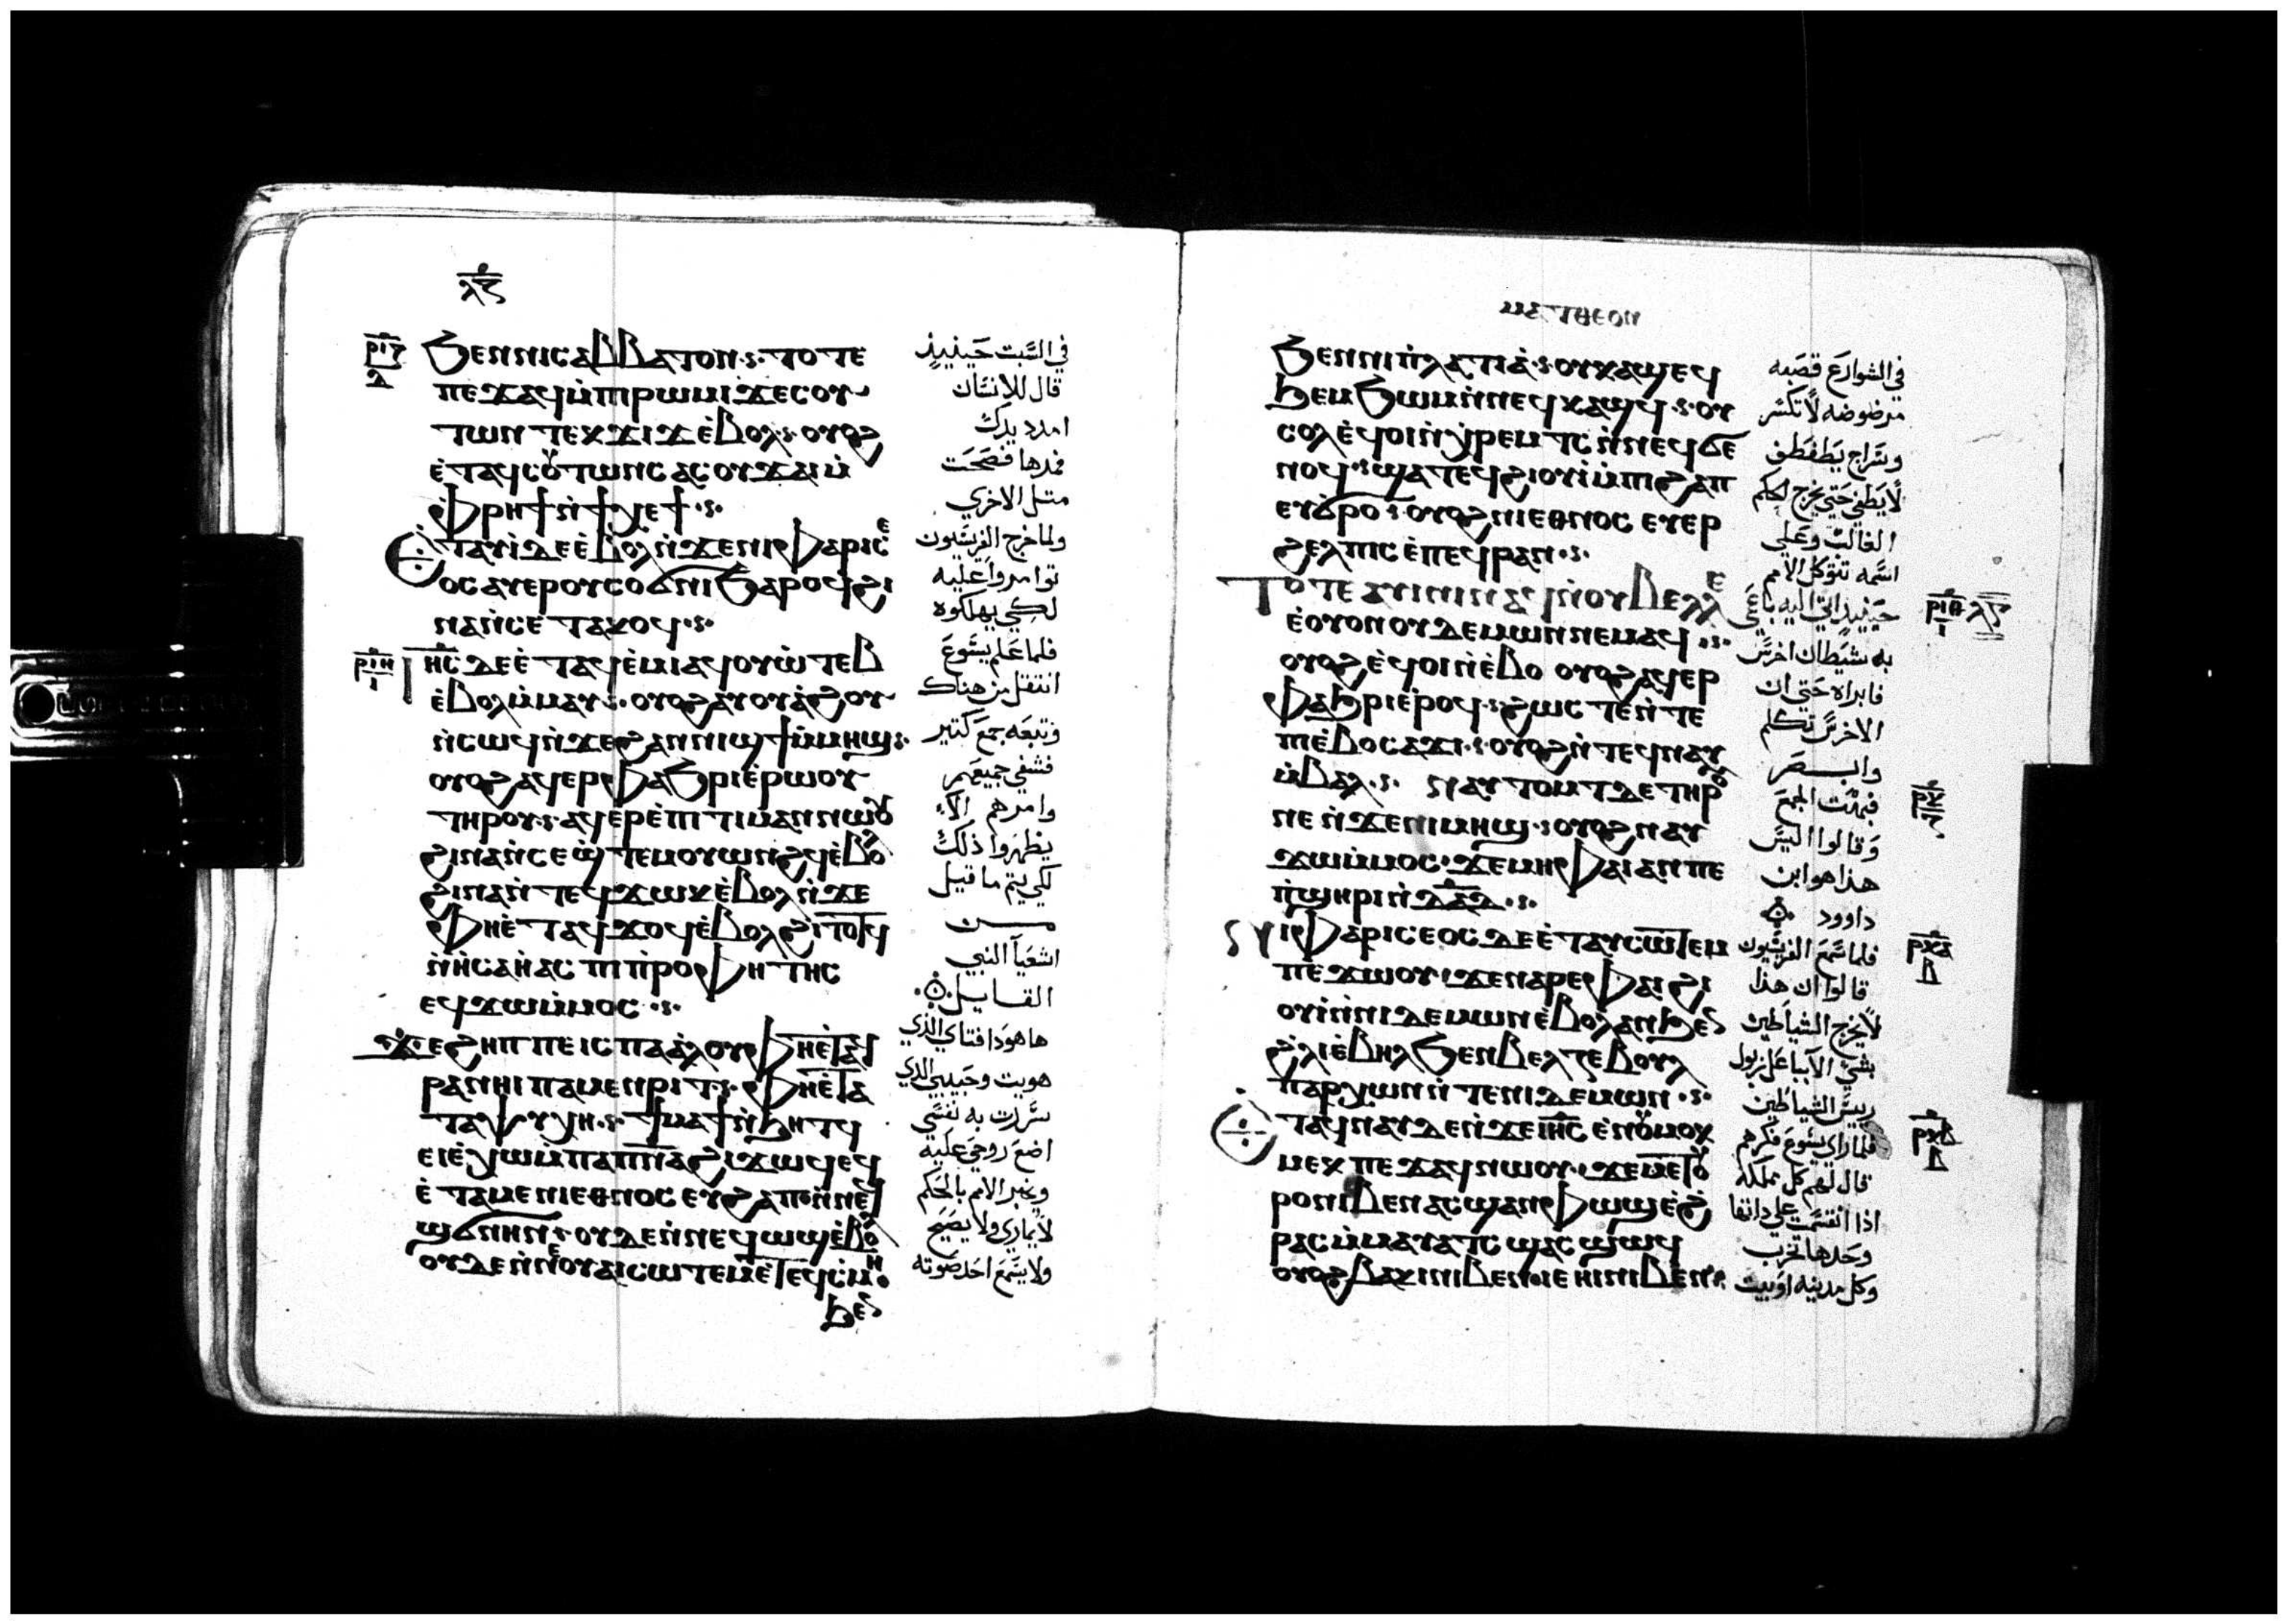 ⲗ̅ⲋ̅
ⲣⲓⲍ
ⲇ
ϧⲉⲛⲛⲓⲥⲁⲃⲃⲁⲧⲟⲛ·ⲥ· ⲧⲟⲧⲉ
ⲡⲉϫⲁϥⲙ̀ⲡⲓⲣⲱⲙⲓϫⲉⲥⲟⲩ
ⲧⲱⲛ ⲧⲉⲕϫⲓϫⲉ̀ⲃⲟⲗ·ⲥ· ⲟⲩⲟϩ
ⲉ̀ⲧⲁϥⲥⲟⲩⲧⲱⲛⲥ ⲁⲥⲟⲩϫⲁⲓⲙ̀
ⲫⲣⲏϯⲛ̀ϯⲭⲉϯ·ⲥ·
ⲉⲧⲁⲩⲓ̀ⲇⲉⲉ̀ⲃⲟⲗⲛ̀ϫⲉⲛⲓⲫⲁⲣⲓⲥⲉ
ⲟⲥⲁⲩⲉⲣⲟⲩⲥⲟϭⲛⲓϧⲁⲣⲟϥϩⲓ
ⲛⲁⲛ̀ⲥⲉⲧⲁⲕⲟϥ·ⲥ·
ⲣⲓⲏ
ⲓ
ⲓⲏ̅ⲥ̅ ⲇⲉⲉ̀ⲧⲁϥⲉ̀ⲙⲓⲁϥⲟⲩⲱ̀ⲧⲉⲃ
ⲉ̀ⲃⲟⲗⲙ̀ⲙⲁⲩ·ⲥ· ⲟⲩⲟϩⲁⲩⲟⲩⲁ̀ϩⲟⲩ
ⲛ̀ⲥⲱϥⲛ̀ϫⲉϩⲁⲛⲛⲓϣϯⲙ̀ⲙⲏϣ·ⲥ·
ⲟⲩⲟϩⲁϥⲉⲣⲫⲁϧⲣⲓⲉ̀ⲣⲱⲟⲩ
ⲧⲏⲣⲟⲩ·ⲥ· ⲁϥⲉⲣⲉ̀ⲡⲓⲧⲓⲙⲁⲛⲛⲱⲟⲩ
ϩⲓⲛⲁⲛ̀ⲥⲉϣ̀ⲧⲉⲙⲟⲩⲱⲛϩϥⲉ̀ⲃⲟⲗ
ϩⲓⲛⲁⲛ̀ⲧⲉϥϫⲱⲕⲉ̀ⲃⲟⲗⲛ̀ϫⲉ
ⲫⲏⲉ̀ⲧⲁϥϫⲟϥⲉ̀ⲃⲟⲗϩⲓⲧⲟⲧϥ
ⲛ̀ⲏⲥⲁⲏ̀ⲁⲥ ⲡⲓⲡ̀ⲣⲟⲫⲏⲧⲏⲥ
ⲉϥϫⲱⲙ̀ⲙⲟⲥ ·ⲥ·
ϫⲉϩⲏⲡⲡⲉⲓⲥⲡⲁⲁ̀ⲗⲟⲩⲫⲏⲉ̀ⲧⲁϥ
ⲣⲁⲛⲏⲓ ⲡⲁⲙⲉⲛⲣⲓⲧ·ⲥ· ⲫⲏⲉ̀ⲧⲁ
ⲧⲁⲯⲩⲭⲏ·ⲥ· ϯⲙⲁϯⲛ̀ϧⲏⲧϥ
ⲉⲓⲉ̀ⲭⲱⲙ̀ⲡⲁⲡ̅ⲛ̅ⲁ̅ϩⲓϫⲱϥⲉϥ
ⲉ̀ⲧⲁⲙⲉⲛⲓⲉⲑⲛⲟⲥ ⲉⲩϩⲁⲡⲟⲛ̀ⲛⲉϥ
ϣϭⲛⲏⲛ·ⲥ·ⲟⲩⲇⲉⲛ̀ⲛⲉϥⲱϣⲉ̀ⲃⲟⲗ
ⲟⲩⲇⲉⲛ̀ⲛⲉⲟⲩⲁⲓⲥⲱⲧⲉⲙⲉ̀ⲧⲉϥⲥ̀ⲙⲏ·
ϧⲉⲛ
في السَّبت حينيذٍ
قال للانسَان
امدد يدك
فمدها فصَحَت
متل الاخري
ولما خرج الفريسّيون
توامروا عَليه
لكي يهلكوه
فلما عَلم يسَّوعَ
انتقل من هناك
وتبعَه جمعَ كتير
فشفي جميعَهم
وامرهم الا
يظهروا ذلك
لكي يتم ما قيل
مــــن
اشعَيآ النبي
القــايــل
ها هودا فتاي الذي
هويت وحبيبي الذي
سرَّرت به نفسَّي
اضعَ روحيَ عَليه
ويخبر الامم بالحَكم
لا يماري ولا يصَيح
ولا يسَّمعَ احَد صَوته
ⲙⲁⲧⲑⲉⲟⲛ
ϧⲉⲛⲛⲓⲡ̀ⲗⲁⲧⲓⲁ̀·ⲥ·ⲟⲩⲕⲁϣⲉϥ
ϧⲉⲙϧⲱⲙⲛ̀ⲛⲉϥⲕⲁϣϥ·ⲥ·ⲟⲩ
ⲥⲟⲗⲉ̀ϥⲟⲓⲛ̀ⲭ̀ⲣⲉⲙⲧⲥⲛ̀ⲛⲉϥϭⲉ
ⲛⲟϥ·ⲥ·ϣⲁⲧⲉϥϩⲓⲟⲩⲓ̀ⲙ̀ⲡⲓϩⲁⲡ
ⲉⲩϭ̀ⲣⲟ·ⲥ·ⲟⲩⲟϩⲛⲓⲉⲑⲛⲟⲥ ⲉⲩⲉⲣ
ϩⲉⲗⲡⲓⲥ ⲉ̀ⲡⲉϥⲣⲁⲛ·ⲥ·
ⲧⲟⲧⲉ ⲁⲩⲓⲛⲓⲛⲁϥⲛ̀ⲟⲩⲃⲉⲗⲗⲉ
ⲉ̀ⲟⲩⲟⲛⲟⲩⲇⲉⲙⲱⲛⲛⲉⲙⲁϥ·ⲥ·
ⲟⲩⲟϩⲉ̀ϥⲟⲓⲛ̀ⲉ̀ⲃⲟ ⲟⲩⲟϩⲁϥⲉⲣ
ⲫⲁϧⲣⲓⲉ̀ⲣⲟϥ·ⲥ·ϩⲱⲥⲧⲉⲛ̀ⲧⲉ
ⲡⲓⲉ̀ⲃⲟⲥⲁϫⲓ·ⲥ·ⲟⲩⲟϩⲛ̀ⲧⲉϥⲛⲁⲩ
ⲙ̀ⲃⲁⲗ·ⲥ· ⲛⲁⲩⲧⲟⲙⲧⲇⲉⲧⲏⲣⲟⲩ
ⲡⲉⲛ̀ϫⲉⲛⲓⲙⲏϣ·ⲥ·ⲟⲩⲟϩⲛⲁⲩ
ϫⲱⲙ̀ⲙⲟⲥ·ϫⲉⲙⲏⲫⲁⲓⲁⲛⲡⲉ
ⲡ̀ϣⲏⲣⲓⲛ̀ⲇⲁⲇ·ⲥ·
ⲛⲓⲫⲁⲣⲓⲥⲉⲟⲥⲇⲉⲉ̀ⲧⲁⲩⲥⲱⲧⲉⲙ
ⲡⲉϫⲱⲟⲩ·ϫⲉⲛⲁⲣⲉⲫⲁⲓϩⲓ
ⲟⲩⲓ̀ⲛ̀ⲛⲓⲇⲉⲙⲱⲛⲉ̀ⲃⲟⲗⲁⲛϧⲉⲛ
ϩ̀ⲗⲓⲉ̀ⲃⲏⲗϧⲉⲛⲃⲉⲗⲍⲉⲃⲟⲩⲗ
ⲡⲁⲣⲭⲱⲛⲛ̀ⲧⲉⲛⲓⲇⲉⲙⲱⲛ·ⲥ·
ⲉⲧⲁϥⲛⲁⲩⲇⲉⲛ̀ϫⲉⲓⲏ̅ⲥ̅ ⲉ̀ⲛⲟⲩⲙⲟⲕ
ⲙⲉⲕ ⲡⲉϫⲁϥⲛⲱⲟⲩ·ϫⲉⲙⲉⲧⲟⲩ
ⲣⲟⲛⲓⲃⲉⲛⲁⲥϣⲁⲛⲫⲱϣⲉ̀ϩ̀
ⲣⲁⲥⲙ̀ⲙⲁⲩⲁⲧⲥ ϣⲁⲥϣⲱϥ
ⲟⲩⲟϩⲃⲁⲕⲓⲛⲓⲃⲉⲛⲓⲉ ⲏⲓⲛⲓⲃⲉⲛ
في الشوارعَ قصَبه
مرضوضه لا تكسَّر
وسَّراج يطفطف
لا يطفي حَتي يخرج الحكم
الغالبه وعَلي
اسَّمه تتوكل الامم
حَينيدٍ اتيَ اليه باعَمي
به شيَطان اخرسَّ
فابراه حَتي ان
الاخرسَّ تكلم
وابــصَر
فبهتت الجمعَ
وقالوا اليسَّ
هذا هو ابن
داوود
فلما سَّمعَ الفريسَّيون
قالوا ان هذا
لا يخرج الشياطين
بشي الا بباعَلزبول
رييسَّ الشياطين
فلما راي يسَّوعَ فكرهم
قال لهم كل مملكه
اذا انقسَّمت عَلي داتها
وحَدها تخرب
وكل مدينه او بيت
ⲣⲓⲑ
ⲓ
ⲗⲍ
ⲣⲕ
ⲣⲕⲁ
ⲃ
ⲣⲕⲃ
ⲃ